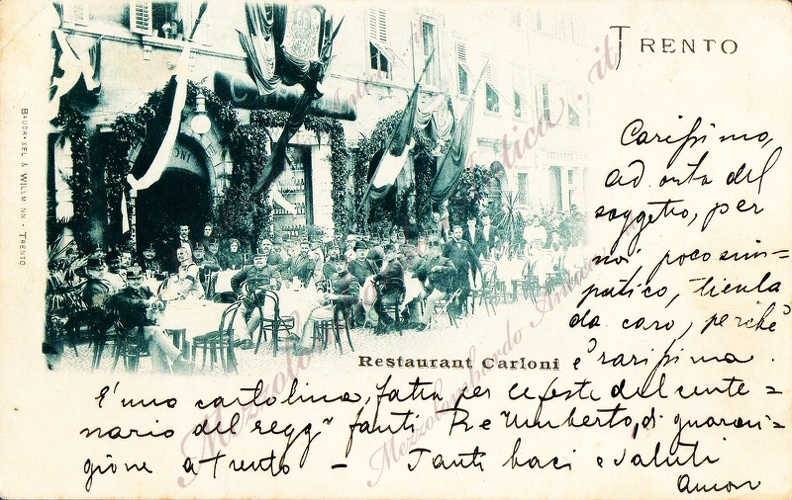 TRENTO
BUDRAXEL & WILLMANN - TRENTO
Restaurant Carloni
Carissimo,
ad onta del
soggetto, per
noi poco sim=
patico, tienla
da caro, perchè
è rarissima.
E' una cartolina, fatta per le feste del cente=
nario del regg.to fanti Re Umberto, di guarni=
gione a Trento — Tanti baci e saluti